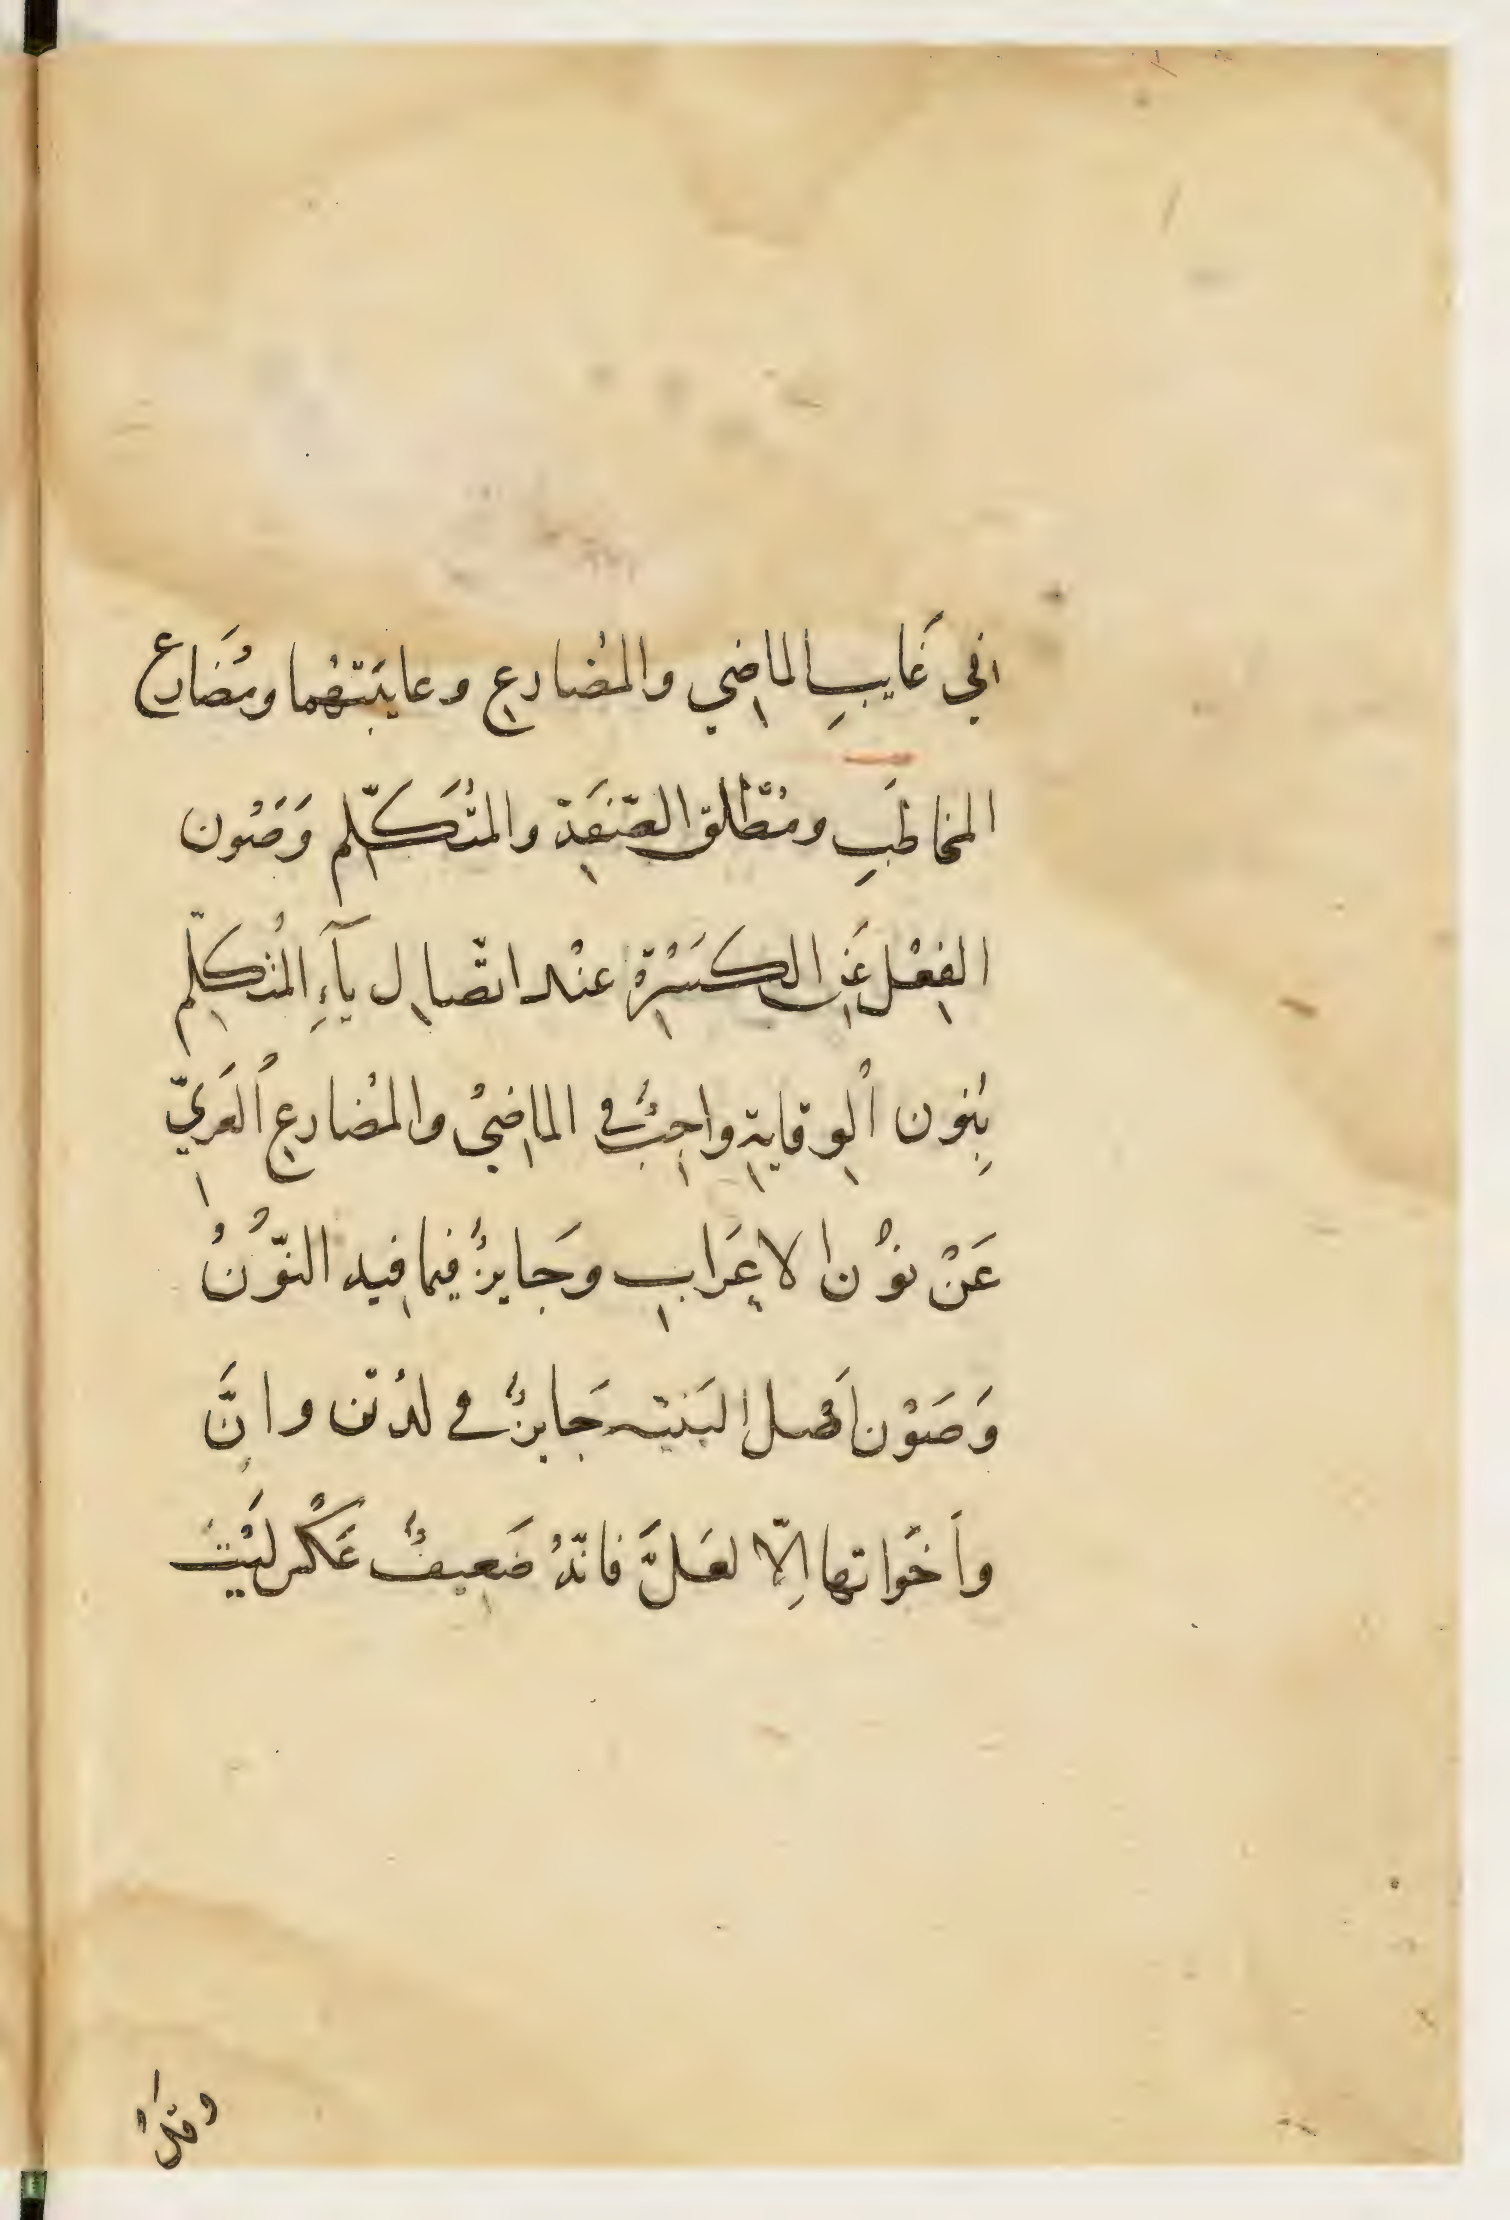 في غَايبِ الماضِي والمُضارِع وعايبَتهُما ومُضَارع
المخاطَبِ ومُطْلق الصّفَة والمتُكَلّم وَصَوْن
الفِعْل عَنِ الكَسْرَة عنْد اتّصالِ يَآءِ المُتَكلّم
بِنُون الْوِقايةِ واجِبٌ في الماضِيْ والمُضارِع الْعَرِيّ
عَنْ نوْن الاعْرَابِ وجَايزٌ فيما فِيه النّوْنُ
وَصَوْن اَصل البَنيَه جَايزٌ في لدُنْ واِنَّ
واَخَواتها اِلّا لعَلَّ فانّهُ ضَعِيفٌ عَكْس لَيْتَ
وقدْ